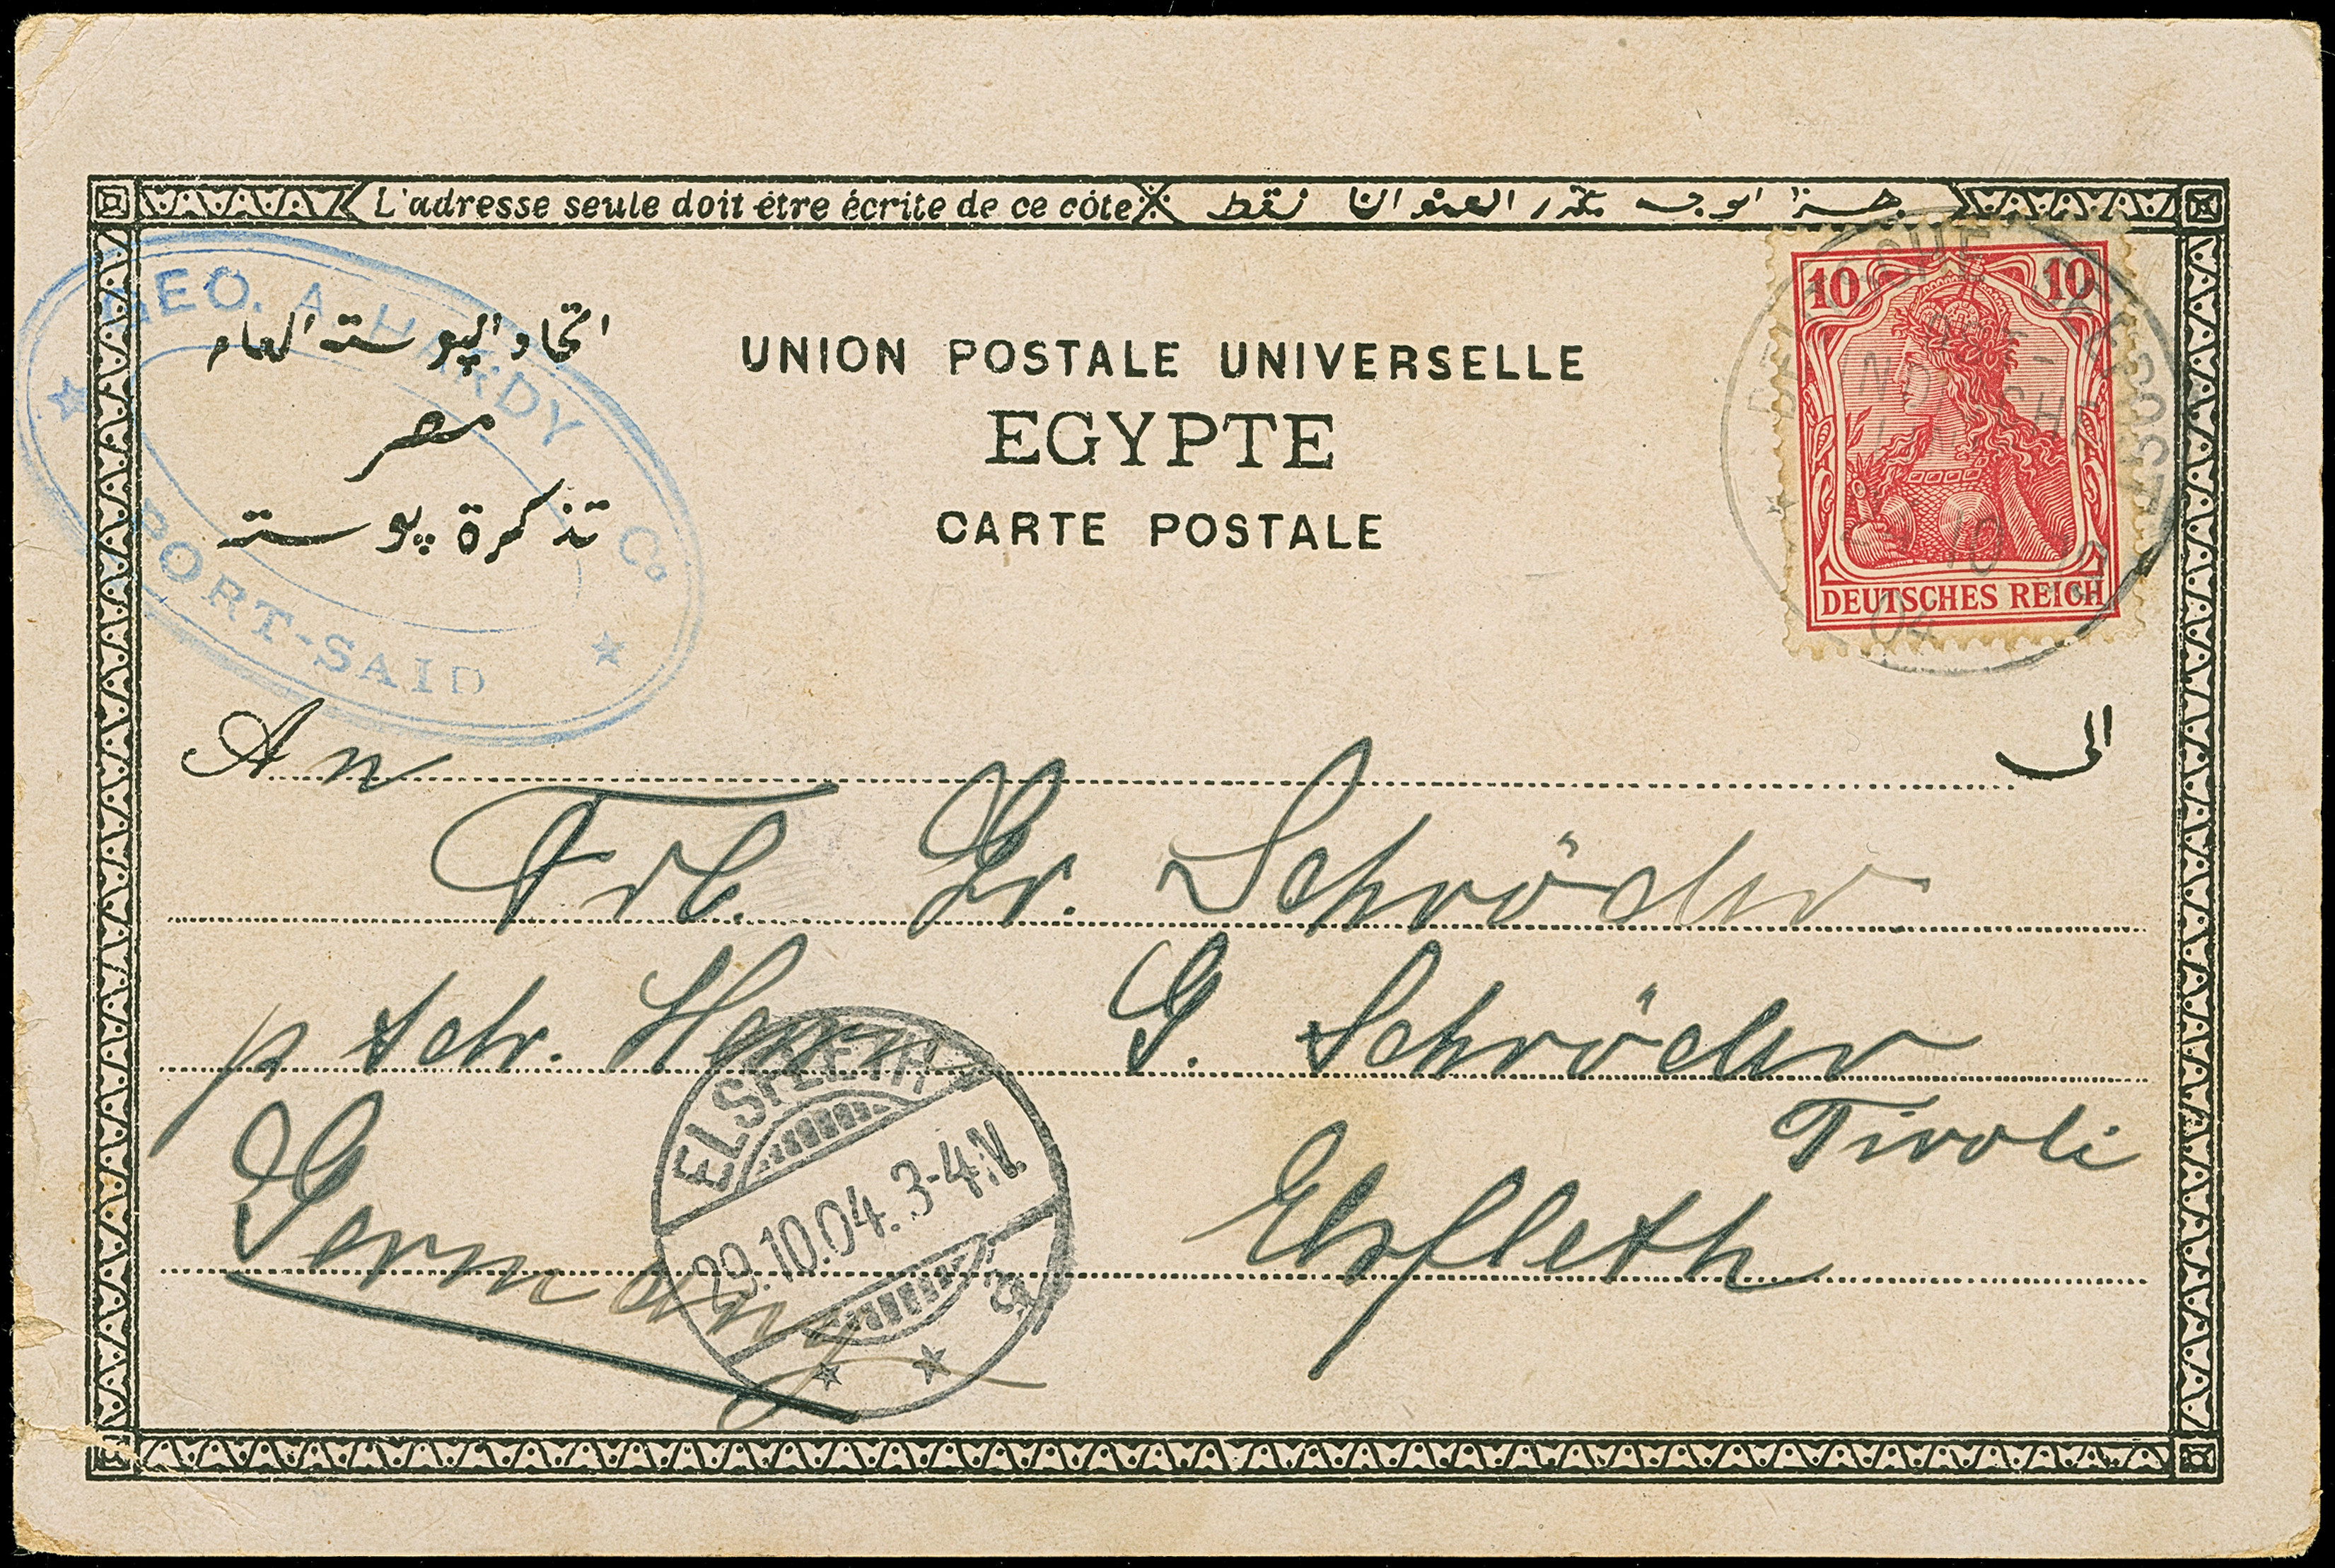 L'adresse seule doit être écrite de ce côté
GEO. A. HARDY Co
PORT-SAID
اتحاد البوستة العام
مصر
تذكرة بوستة
UNION POSTALE UNIVERSELLE
EGYPTE
CARTE POSTALE
10 10
DEUTSCHES REICH
DEUTSCHE SEEPOST
OST-
INDISCHE
10
04
الى
An
Frl. Gr. Schröder
p Adr. Herrn G. Schröder
Tivoli
Germany Elsfleth
ELSFLETH
29.10.04.3-4.V.
a